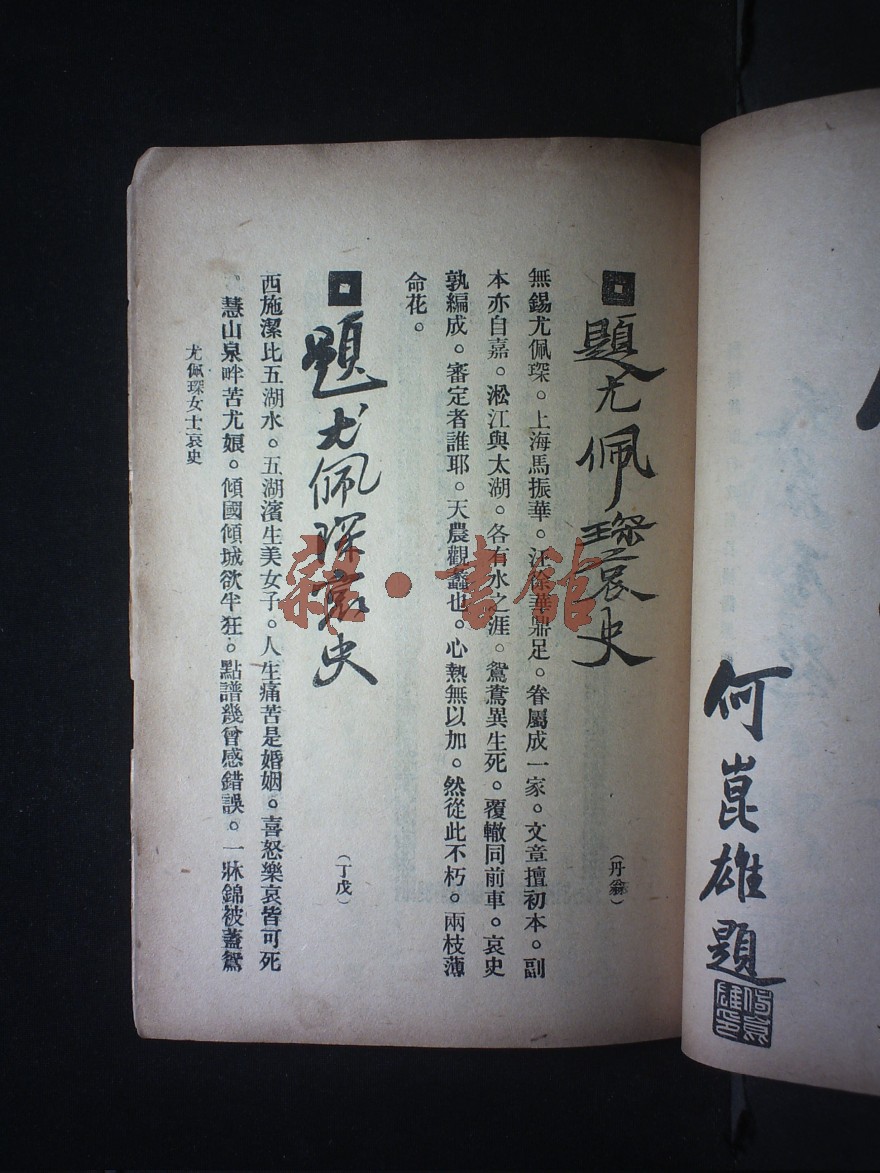 何崑雄題
題尤佩琛哀史
(丹翁)
無錫尤佩琛。上海馬振華。汪徐華鼎足。眷屬成一家。文章擅初本。副
本亦自嘉。淞江與太湖。各有水之涯。鴛鴦異生死。覆轍同前車。哀史
孰編成。審定者誰耶。天農觀蠡也。心熱無以加。然從此不朽。兩枝薄
命花。
題尤佩琛哀史
(丁戊)
西施潔比五湖水。五湖濱生美女子。人生痛苦是婚姻。喜怒樂哀皆可死
。慧山泉畔苦尤娘。傾國傾城欲半狂。點譜幾曾感錯誤。一牀錦被蓋鴛
尤佩琛女士哀史
雜·書館